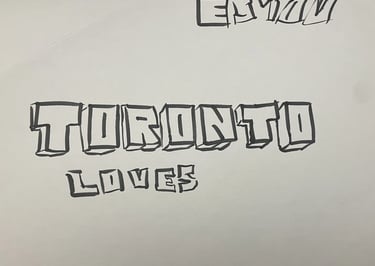 TORONTO
LOVES